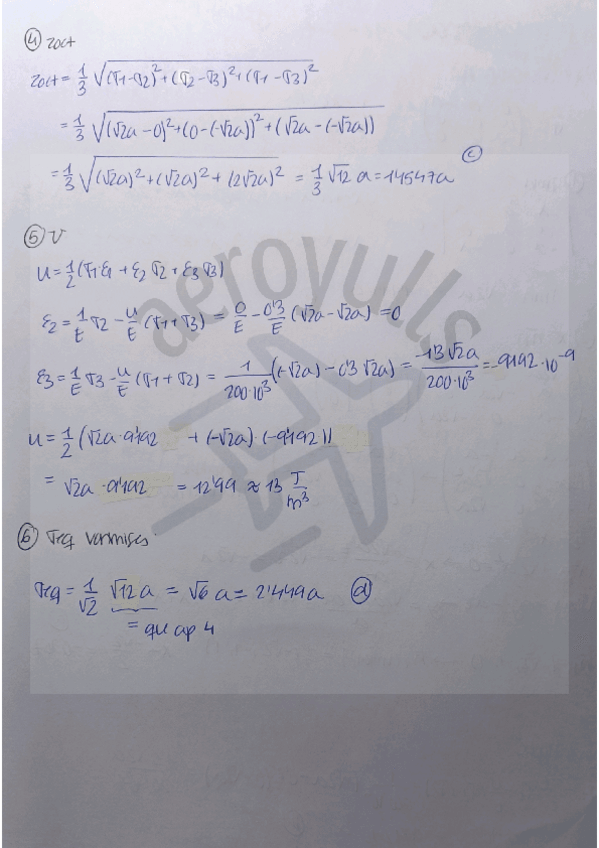 ④ τoct
τoct = 1/3 √((σ1-σ2)² + (σ2-σ3)² + (σ1-σ3)²
= 1/3 √((√2a - 0)² + (0 - (-√2a))² + (√2a - (-√2a))
= 1/3 √((√2a)² + (√2a)² + (2√2a)² = 1/3 √12 a = 1'1547a ⓒ
⑤ U
u = 1/2 (σ1 ε1 + ε2 σ2 + ε3 σ3)
ε2 = 1/E σ2 - u/E (σ1 + σ3) = 0/E - 0'3/E (√2a - √2a) = 0
ε3 = 1/E σ3 - u/E (σ1 + σ2) = 1/200·10³ (-√2a) - 0'3 √2a) = -1'3√2a/200·10³ = -9'192·10⁻⁹
u = 1/2 (√2a · 9'192 + (-√2a) · (-9'192))
= √2a · 9'192 = 12'99 ≈ 13 J/m³
⑥ σeq vonmises
σeq = 1/√2 √12 a = √6 a = 2'449a ⓓ
= que ap 4
aeroyulls